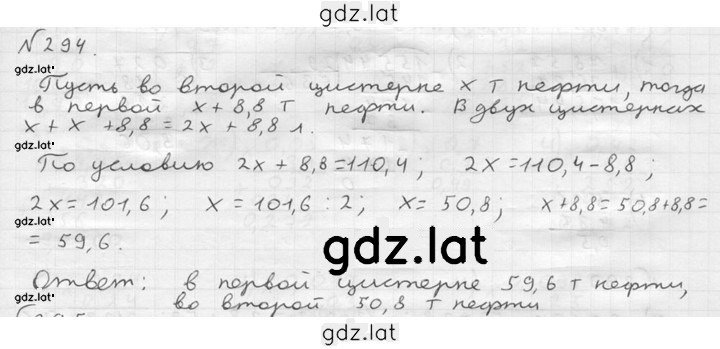 gdz.lat
№294.
gdz.lat
Пусть во второй цистерне x т нефти, тогда
в первой x + 8,8 т нефти. В двух цистернах
x + x + 8,8 = 2x + 8,8 л.
gdz.lat
По условию 2x + 8,8 = 110,4; 2x = 110,4 - 8,8;
2x = 101,6; x = 101,6 : 2; x = 50,8; x + 8,8 = 50,8 + 8,8 =
gdz.lat
= 59,6.
gdz.lat
Ответ: в первой цистерне 59,6 т нефти,
gdz.lat
во второй 50,8 т нефти
gdz.lat